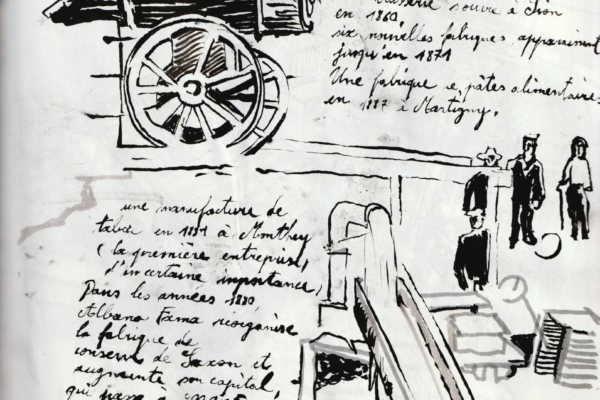 brasserie s'ouvre à Sion
en 1860,
six nouvelles fabriques apparaissent
jusqu'en 1871
Une fabrique de pâtes alimentaires
en 1887 à Martigny.
une manufacture de
tabac en 18 1 à Monthey
(la première entreprise,
d'incertaine importance)
Dans les années 1880
Albano Fama réorganise
la fabrique de
conserve de Saxon et
augmente son capital,
qui